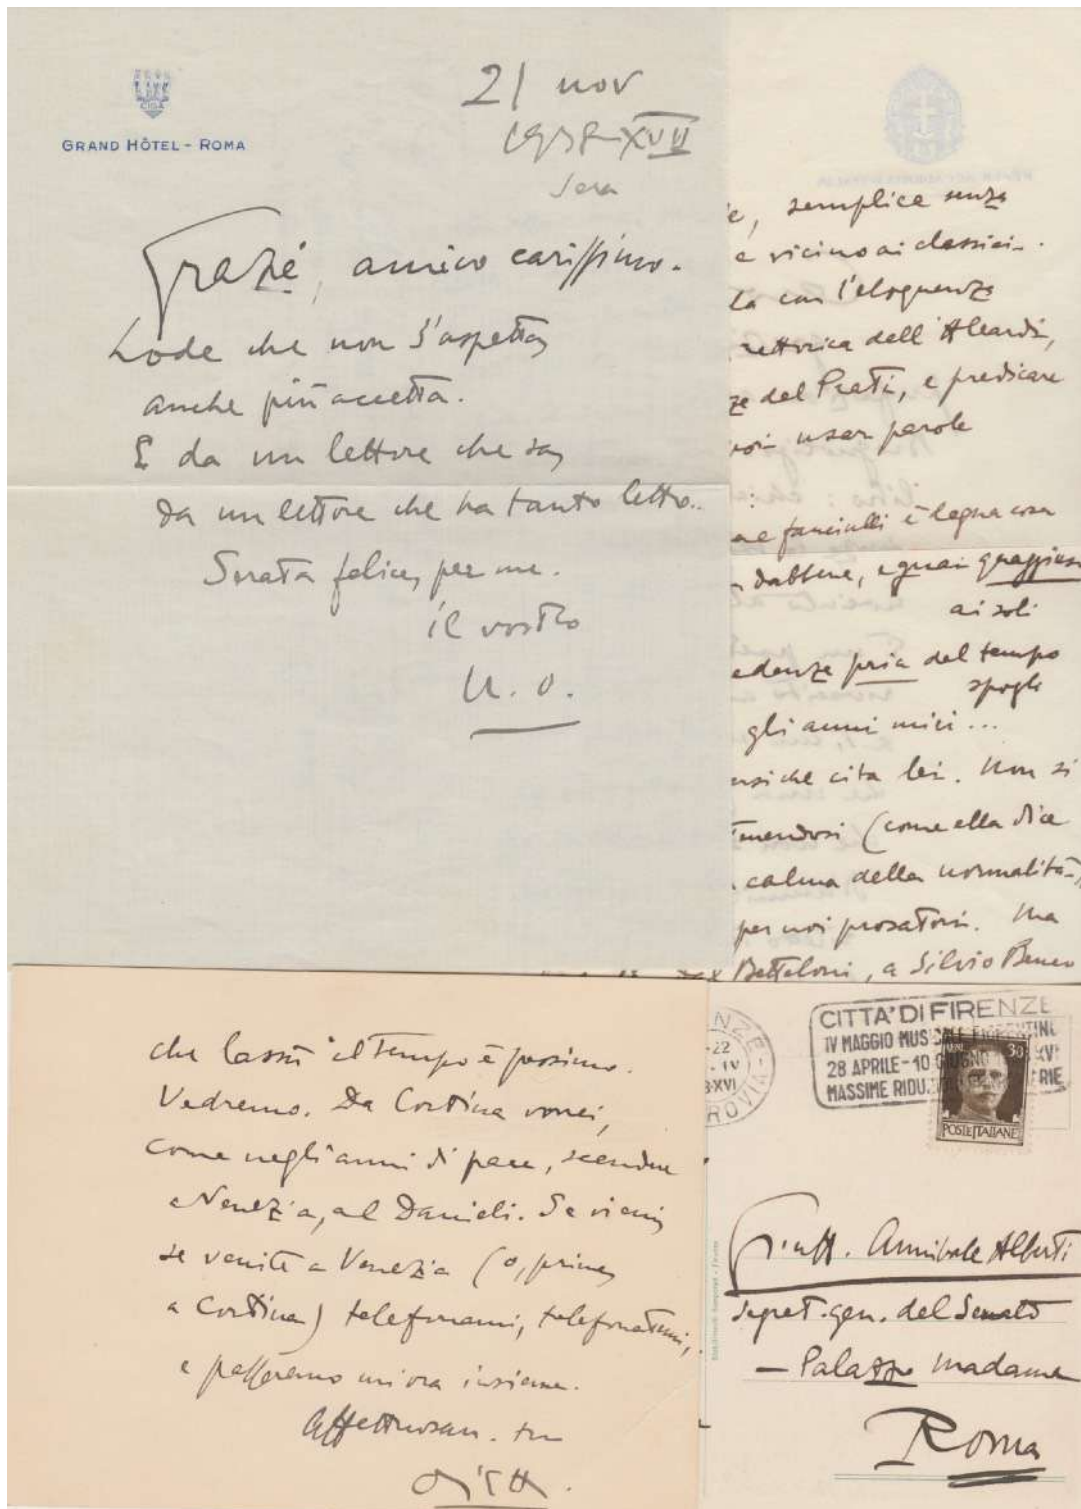 CIGA
GRAND HÔTEL - ROMA
21 nov
1938-XVII
sera
Grazie, amico carissimo.
Lode che non s'aspetta,
anche più accetta.
E da un lettore che sa,
da un lettore che ha tanto letto..
Serata felice, per me.
il vostro
U. O.
semplice senza
e vicino ai classici.
con l'eloquenza
rettorica dell'Aleardi,
del Prati, e predicare
usar parole
fanciulli è legna cosa
dabbene, e guai
ai soli
pria del tempo
spogli
gli anni miei...
che cita lei. Non si
(come ella dice
calma della normalità,
per noi prosatori. Ma
Betteloni, a Silvio Benco
che lassù il tempo è pessimo.
Vedremo. Da Cortina vorrei,
come negli anni di pace, scendere
a Venezia, al Danieli. Se vieni,
se venite a Venezia (o, prima,
a Cortina) telefonami, telefonatemi,
e passeremo un'ora insieme.
Affettuosam. tuo
CITTA' DI FIRENZE
IV MAGGIO MUSICALE FIORENTINO
28 APRILE - 10 GIUGNO
MASSIME RIDU
30
POSTE ITALIANE
Annibale Alberti
segret. gen. del Senato
— Palazzo Madama
Roma